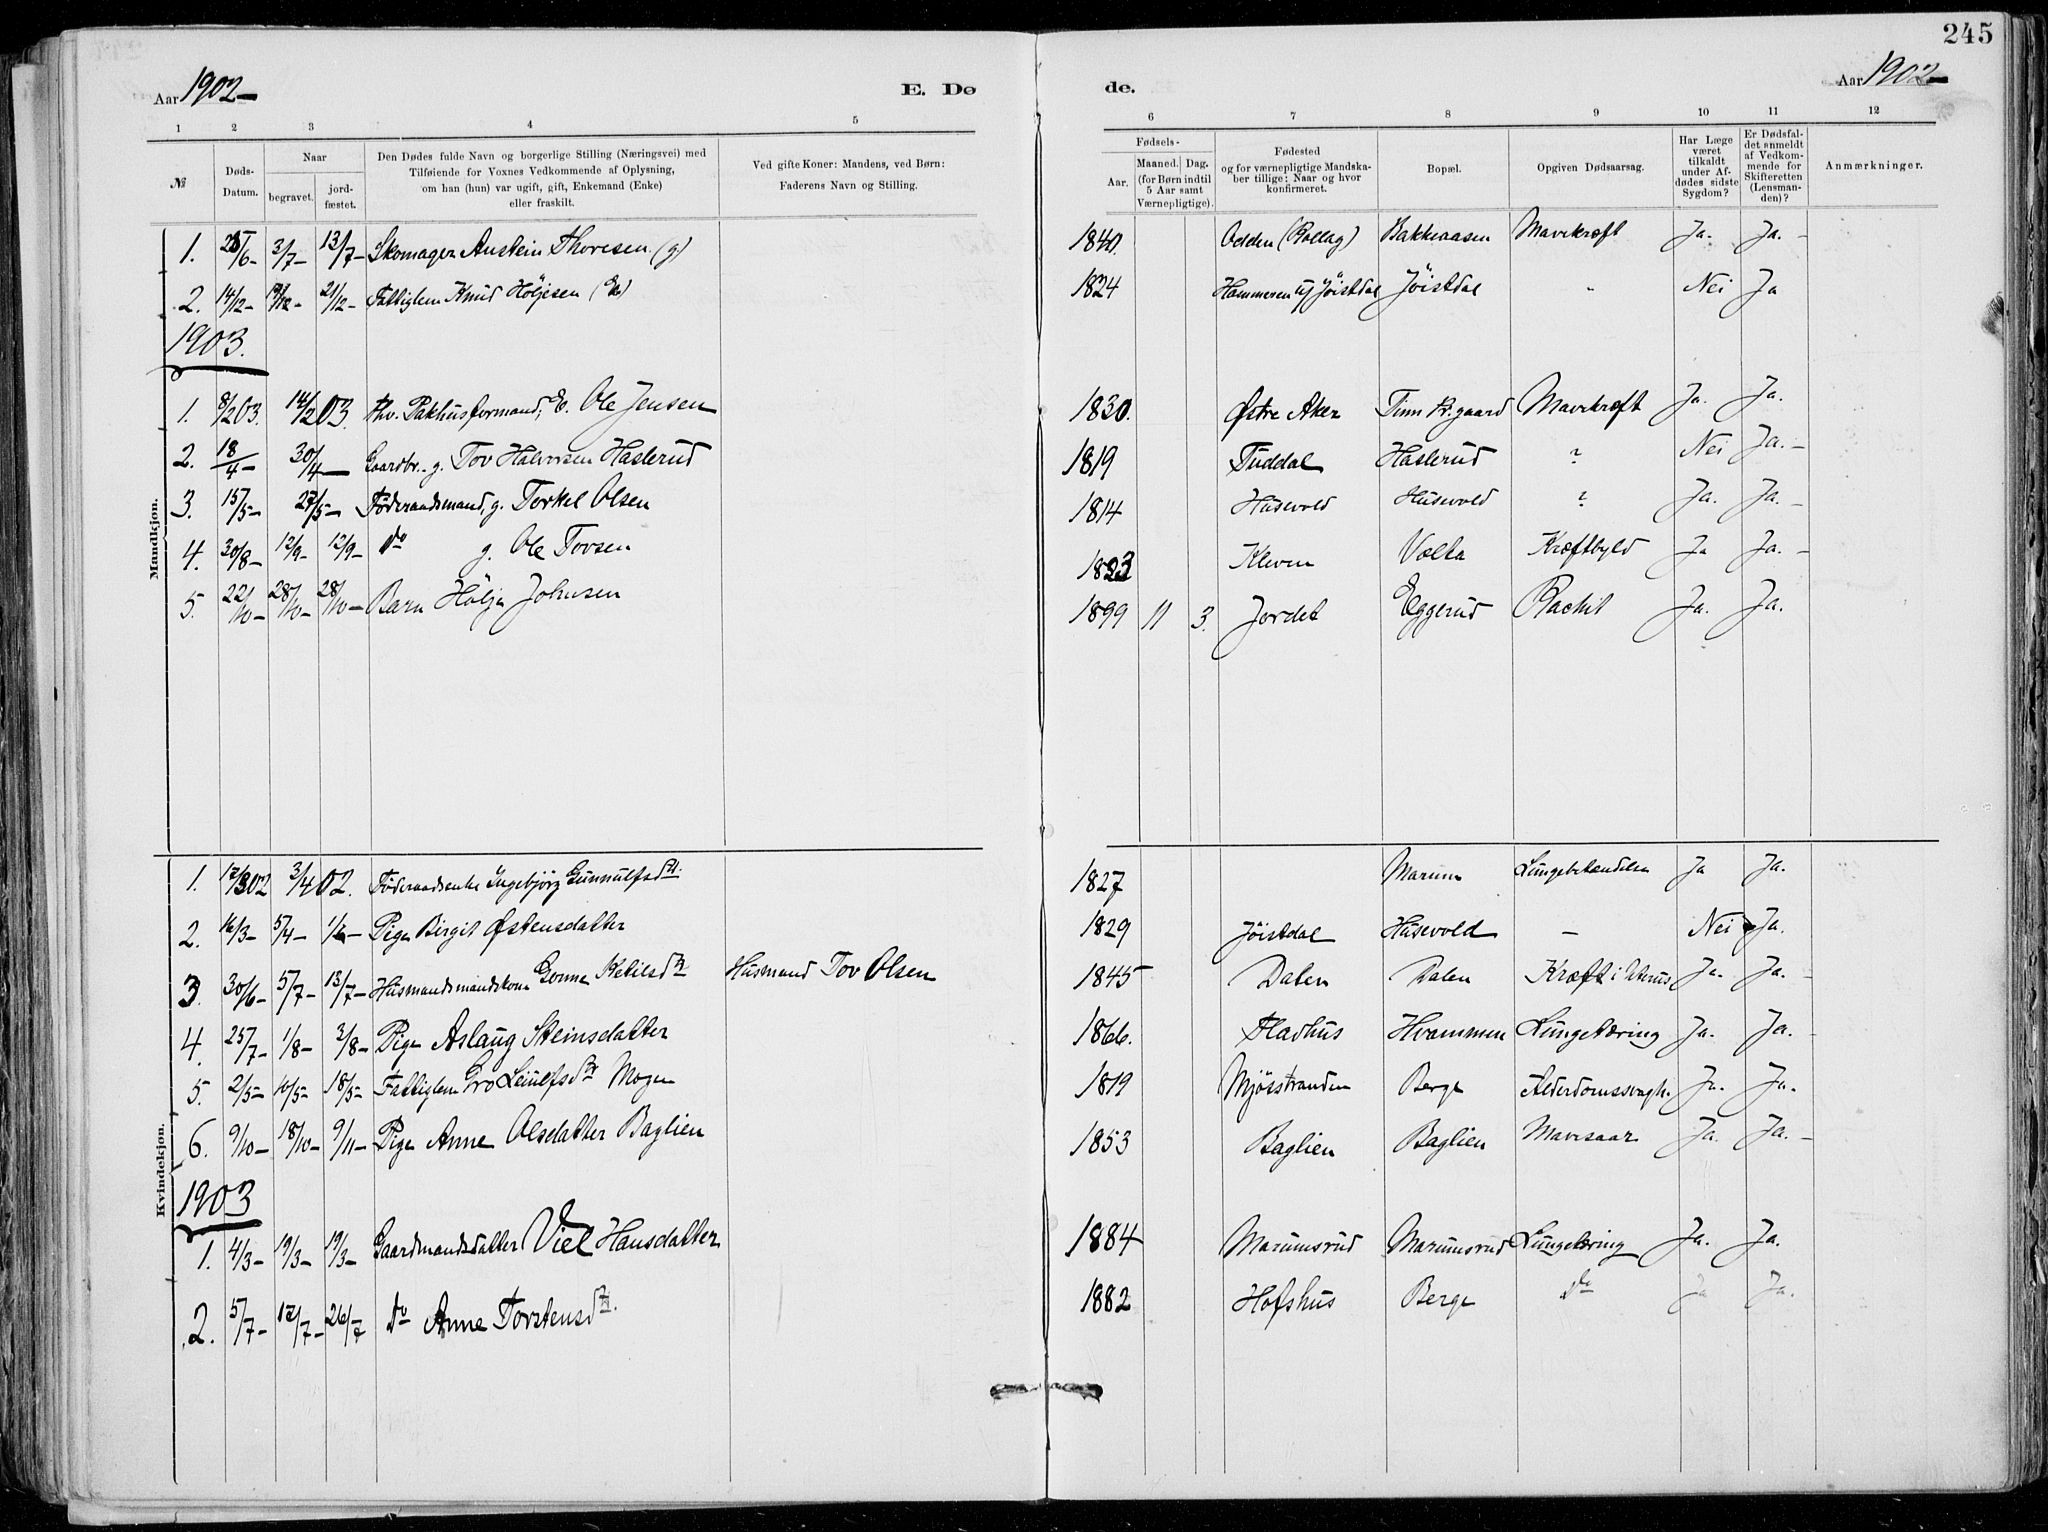 245
Aar 1902 — E. Dø de. Aar 1902 —
1 2 3 4 5 6 7 8 9 10 11 12
№ Døds-Datum. Naar begravet. jord-fæstet. Den Dødes fulde Navn og borgerlige Stilling (Næringsvei) med Tilføiende for Voxnes Vedkommende af Oplysning, om han (hun) var ugift, gift, Enkemand (Enke) eller fraskilt. Ved gifte Koner: Mandens, ved Børn: Faderens Navn og Stilling. Fødsels- Aar. Maaned. Dag. (for Børn indtil 5 Aar samt Værnepligtige). Fødested og for værnepligtige Mandskaber tillige: Naar og hvor konfirmeret. Bopæl. Opgiven Dødsaarsag. Har Læge været tilkaldt under Afdødes sidste Sygdom? Er Dødsfaldet anmeldt af Vedkommende for Skifteretten (Lensmanden)? Anmærkninger.
Mandkjøn.
1. 3/7 — 13/7 — Skomager Austein Thoresen (g) 1840. Odden (Rollag) Bakkeaasen Mavekræft Ja. Ja. —
2. 14/12 — 21/12 — Fattiglem Knud Höljesen (Ek) 1824 Hammeren u/ Jöistdal Jöistdal " Nei Ja
1903.
1. 8/2 03. 14/2 03. fhv. Pakhusformand, E. Ole Jensen 1830. Østre Aker Tinn Pr.gaard Mavekræft Ja. Ja.
2. 18/4 — 30/4 — Gaardbr. g. Tov Halvorsen Haslerud 1819 Tuddal Haslerud ? Nei Ja. —
3. 15/5 — 27/5 — Föderaadsmand, g. Torkel Olsen 1814 Husevold Husevold ? Ja. Ja. —
4. 30/8 — 12/9 — 12/9 — do g. Ole Tovsen 1823 Kleven Volta Kræftbyld Ja Ja. —
5. 22/10 — 28/10 — 28/10 — Barn Hölje Johnsen 1899 11 3. Jordet Eggerud Rachit Ja. Ja.
Kvindekjøn.
1. 12/3 02 3/4 02. Föderaadsenke Ingebjörg Gunnulfsdtr. 1827 Marum Lungebetændelse Ja Ja.
2. 16/3 — 5/4 — Pige Birgit Østensdatter 1829 Jöistdal Husevold — Nei Ja.
3. 30/6 — 5/7 — 13/7 — Husmandsmandskone Gonne Ketilsdtr Husmand Tov Olsen 1845 Dalen Dalen Kræft i Uterus Ja. Ja. —
4. 25/7 — 1/8 — 3/8 — Pige Aslaug Steinsdatter 1866. Fladhus Hvammen Lungetæring Ja. Ja. —
5. 2/5 — 10/5 — 18/5 — Fattiglem Gro Leiulfsdtr Mogen 1819 Mjösstranden Berge Alderdomssvagh. Ja. Ja.
6. 9/10 — 18/10 — 9/11 — Pige Anne Olsdatter Baglien 1853 Baglien Baglien Mavesaar Ja. Ja. —
1903
1. 4/3 — 19/3 — 19/3 — Gaardmandsdatter Viel Hansdatter 1884 Marumsrud Marumsrud Lungetæring Ja. Ja.
2. 5/7 — 12/7 — 26/7 do Anne Torstensdtr. 1882 Hofshus Berge do Ja Ja.